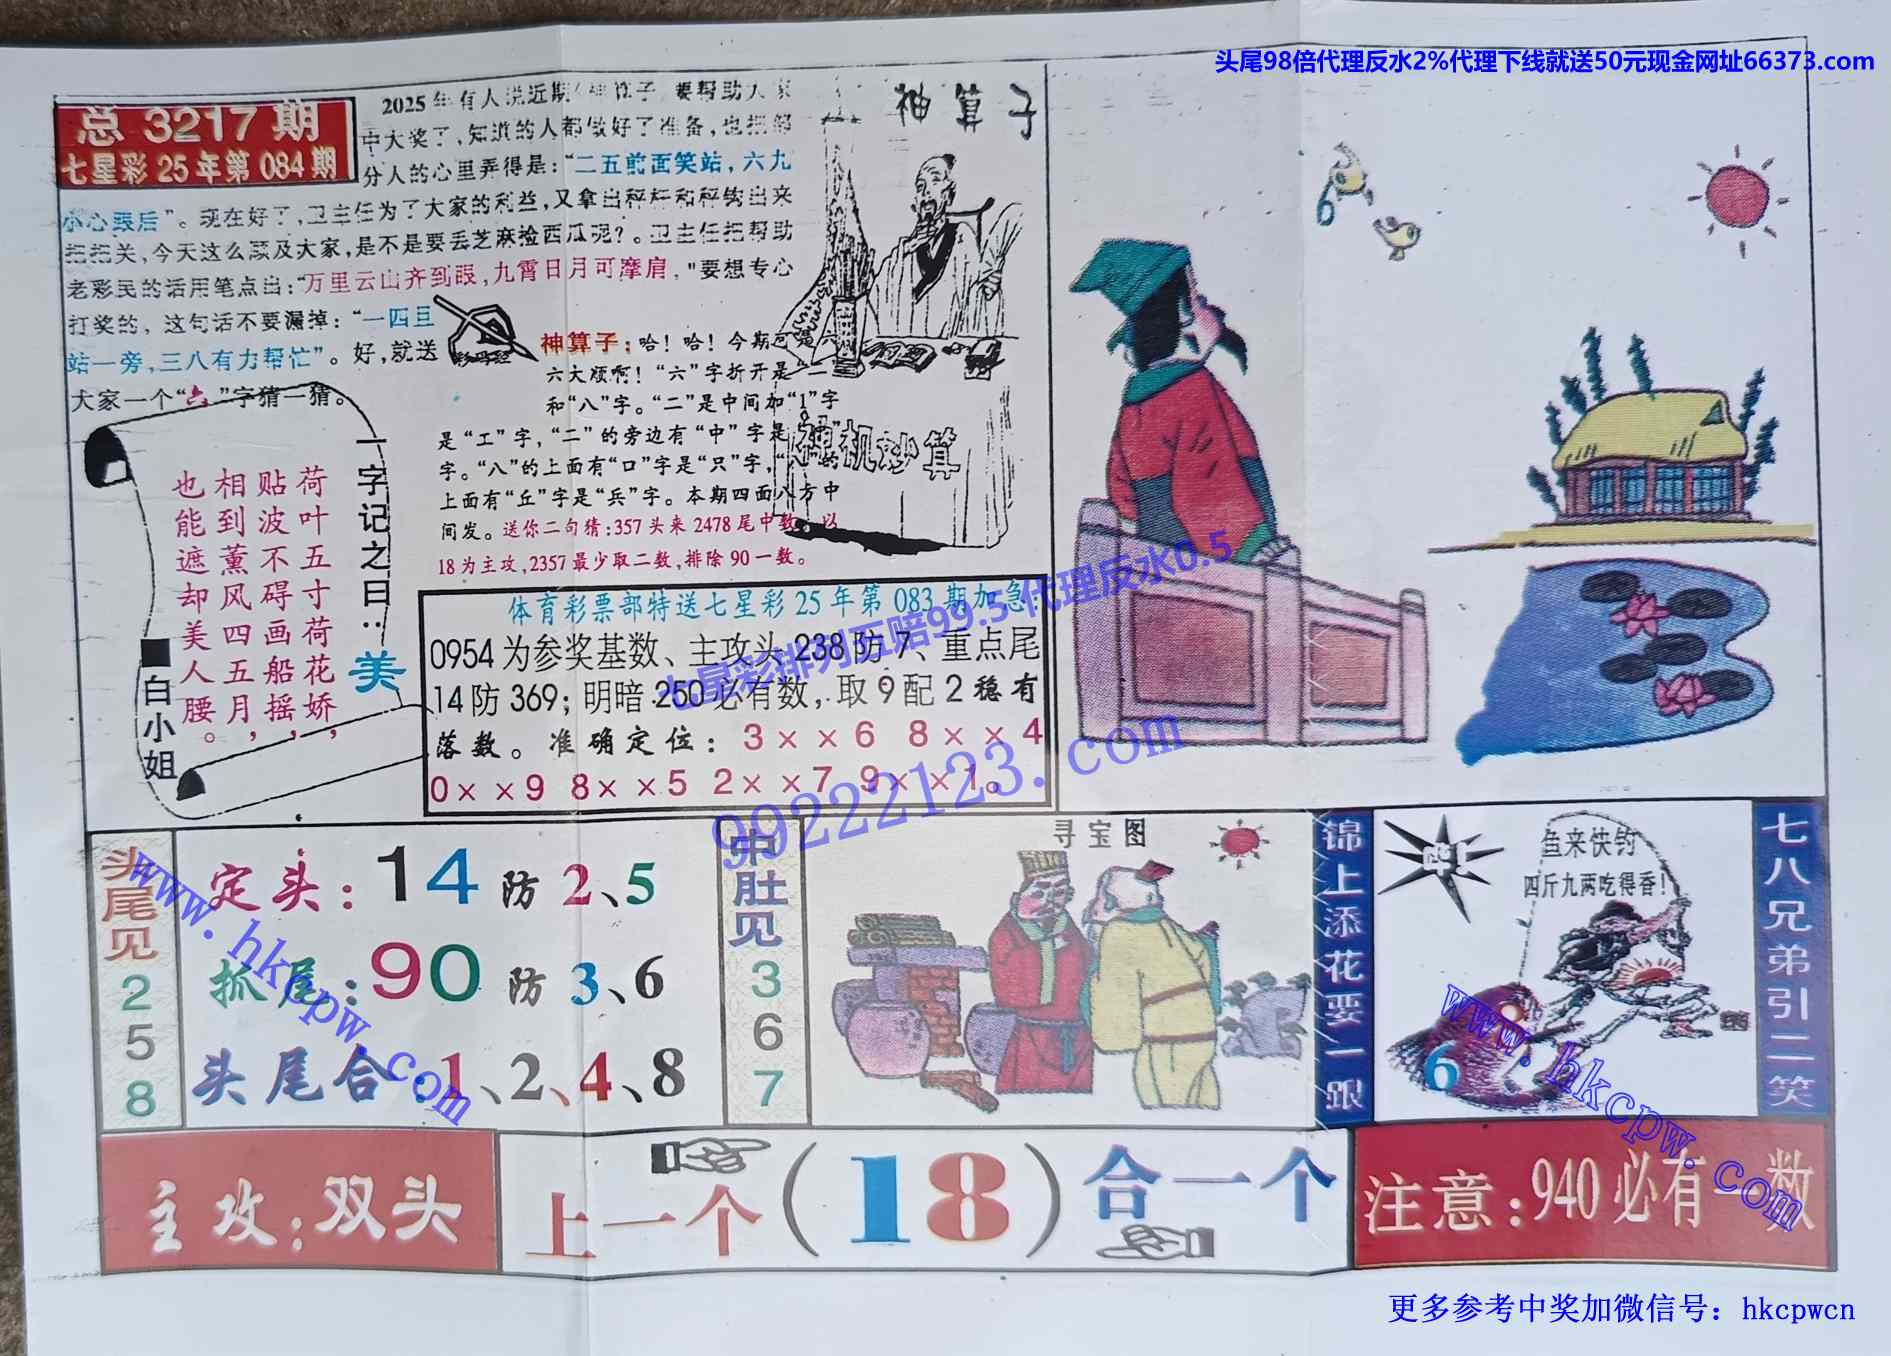 头尾98倍代理反水2%代理下线就送50元现金网址66373.com
总 3217 期
七星彩 25 年第 084 期
2025年有人说近期“神算子”要帮助大家
中大奖了，知道的人都做好了准备，也把部
分人的心里弄得是：“二五前面笑站，六九
小心跟后”。现在好了，卫主任为了大家的利益，又拿出秤杆和秤钩出来
把把关，今天这么顾及大家，是不是要丢芝麻捡西瓜呢？。卫主任把帮助
老彩民的话用笔点出：“万里云山齐到眼，九霄日月可摩肩，"要想专心
打奖的，这句话不要漏掉：“一四且
站一旁，三八有力帮忙”。好，就送
大家一个“六”字猜一猜。
神算子
神算子：哈！哈！今期可是六
六大顺啊！“六”字折开是“二”
和“八”字。“二”是中间加“1”字
是“工”字，“二”的旁边有“中”字是
字。“八”的上面有“口”字是“只”字，
上面有“丘”字是“兵”字。本期四面八方中
间发。送你二句猜：357头来2478尾中数，以
18为主攻,2357最少取二数,排除90一数。
神机妙算
一字记之曰：美
荷叶五寸荷花娇，
贴波不碍画船摇，
相到薰风四五月，
也能遮却美人腰。
白小姐
体育彩票部特送七星彩25年第083期加急：
0954为参奖基数、主攻头238防7、重点尾
14防369；明暗250必有数，取9配2稳有
落数。准确定位：3××6 8××4
0××9 8××5 2××7 9××1。
七星彩排列五赔99.5代理反水0.5
99222123.com
6
头尾见258
定头：14防2、5
抓尾：90防3、6
头尾合：1、2、4、8
www.hkcpw.com
中肚见367
寻宝图
锦上添花要一跟
鱼来快钓
四斤九两吃得香！
6
www.hkcpw.com
七八兄弟引二笑
主攻：双头
上一个（18）合一个
注意：940必有一数
更多参考中奖加微信号：hkcpwcn